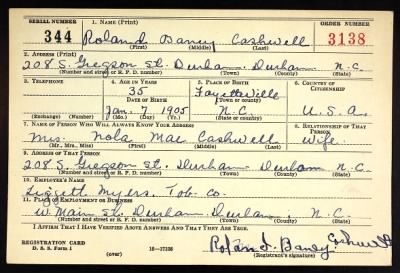 SERIAL NUMBER 1. NAME (Print) ORDER NUMBER
344 Roland Baney Cashwell 3138
(First) (Middle) (Last)
2. ADDRESS (Print)
208 S. Gregson St. Durham. Durham N.C.
(Number and street or R. F. D. number) (Town) (County) (State)
3. TELEPHONE 4. AGE IN YEARS 5. PLACE OF BIRTH 6. COUNTRY OF CITIZENSHIP
35 Fayetteville
DATE OF BIRTH (Town or county)
Jan. 7 1905 N.C. U.S.A.
(Exchange) (Number) (Mo.) (Day) (Yr.) (State or country)
7. NAME OF PERSON WHO WILL ALWAYS KNOW YOUR ADDRESS 8. RELATIONSHIP OF THAT PERSON
Mrs. Nola Mae Cashwell Wife
(Mr., Mrs., Miss) (First) (Middle) (Last)
9. ADDRESS OF THAT PERSON
208 S. Gregson St. Durham Durham N.C.
(Number and street or R. F. D. number) (Town) (County) (State)
10. EMPLOYER'S NAME
Liggett Myers. Tob. Co.
11. PLACE OF EMPLOYMENT OR BUSINESS
W. Main St. Durham. Durham. N.C.
(Number and street or R. F. D. number) (Town) (County) (State)
I AFFIRM THAT I HAVE VERIFIED ABOVE ANSWERS AND THAT THEY ARE TRUE.
REGISTRATION CARD
D. S. S. Form 1 16—17105 Baney Cashwell
(over) (Registrant's signature)